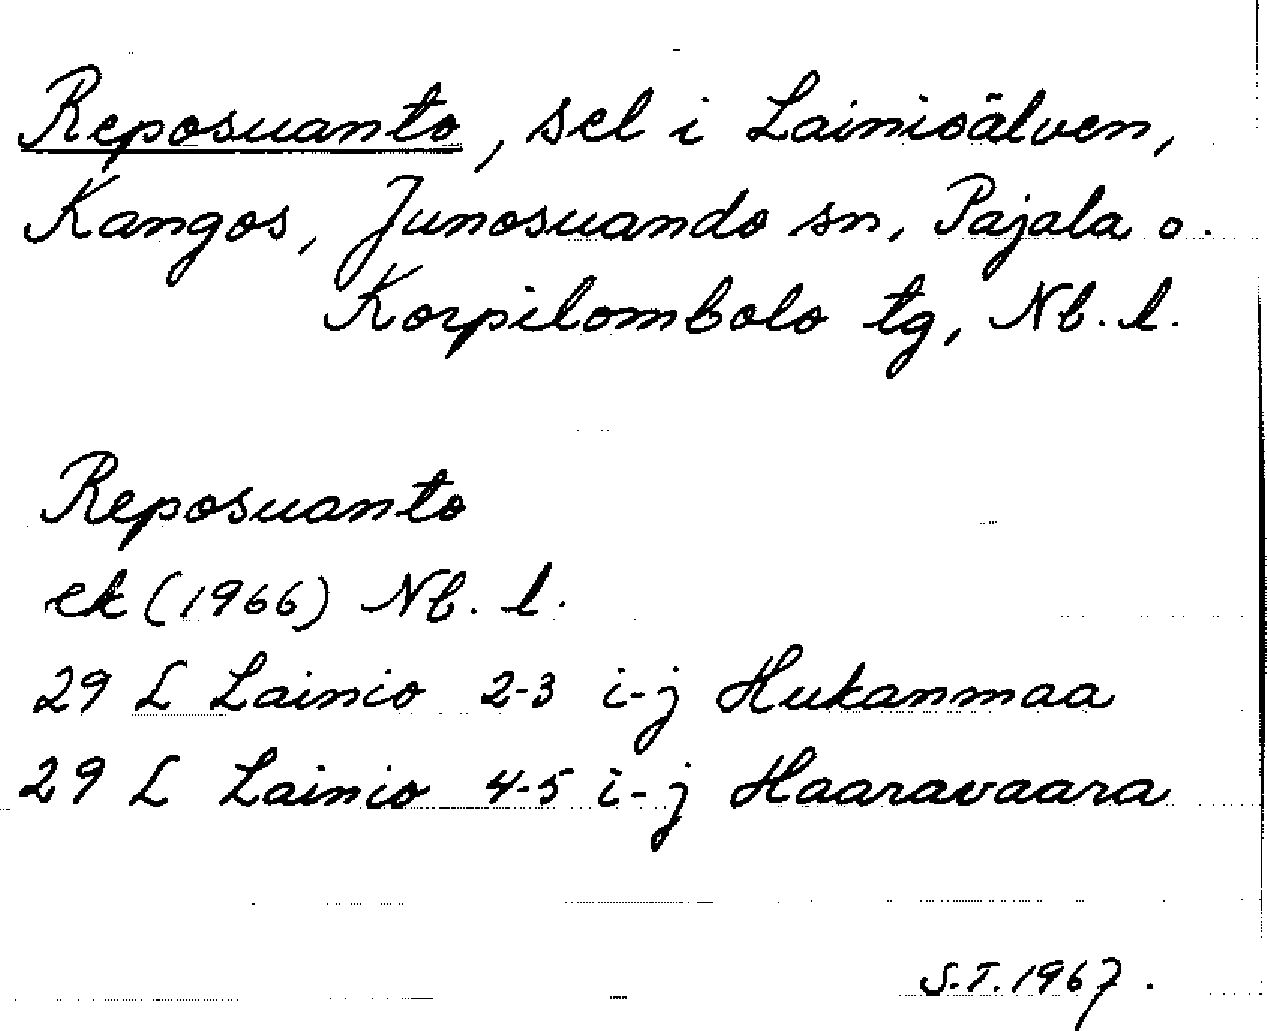 Reposuanto, sel i Lainioälven,
Kangos, Junosuando sn, Pajala o.
Korpilombolo tg, Nb. l.
Reposuanto
ek (1966) Nb. l.
29 L Lainio 2-3 i-j Hukanmaa
29 L Lainio 4-5 i-j Haaravaara
S.T. 1967.